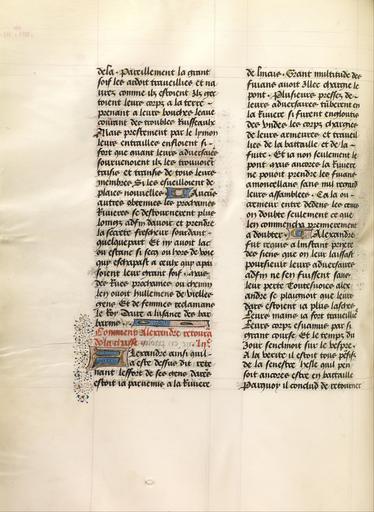 dela. Pareillement la grant
soif les ardoit traveillies et na
vrez comme ilz estoient Ilz get
toient leurs corps a la terre
prenant a leur bouche leaue
courant des troubles Ruisseaulx
Mais prestement par le lymon
leurs entrailles enfloient si
fort que quant leurs adversaires
sourvenoient ilz les trouvoient
transis de tous leurs
membres. Si les esveilloient de
plaies nouvelles Aucuns
autres obmettes les prochaines
Rivieres se destournerent plus
loingz adfin davoir et prendre
la secrete frescheur sourdant
quelquepart Et ny avoit lac
ou estanc si secq ou hors de voie
que eschapast a ceulx que apai
soient leur grant soif
des Rues prochaines ou chemin
len oioit hullemens de vieilles
gens Et de femmes reclamans
le Roy Daire a lusance des bar
barins
Comment Alexandre retourna
de la chasse
Alexandre ainsi quil
a este dessus dit rete
nant leffort de ses gens daire
estoit ia parvenue a la Riviere
de linaus. Grant multitude des
fuians avoit illec chargie le
pont. Plusieurs pressez de
leurs adversaires tumberent en
la Riviere si furent engloutis
des undes les corps chargies
de leurs armeures et travail
lies de la battaille et de la
fuite. Et ia non seulement le
pont mais ancores la Riviere
ne pouoit prendre les fuians
amoncellans sans nul regard
leurs assamblees. Car la ou
cremeur entre dedens les cueurs
on doubte seulement ce que
len commencha premierement
a doubter Alexandre
fut requis a linstant priere
des siens que on leur laissast
poursievir leurs adversaires
adfin ne sen fuissent sans
leur perte Toutesvoies alex
andre se plaignoit que leurs
dars estoient ia plus lassez
Leurs mains ia fort travaillies
Leurs corps esuanuis par si
grant course Et le temps du
Jour senclinoit sur le vespre.
A la verite il estoit tous pensifz
de la senestre
soit ancores estre en battaille
Parquoy il conclud de retourner